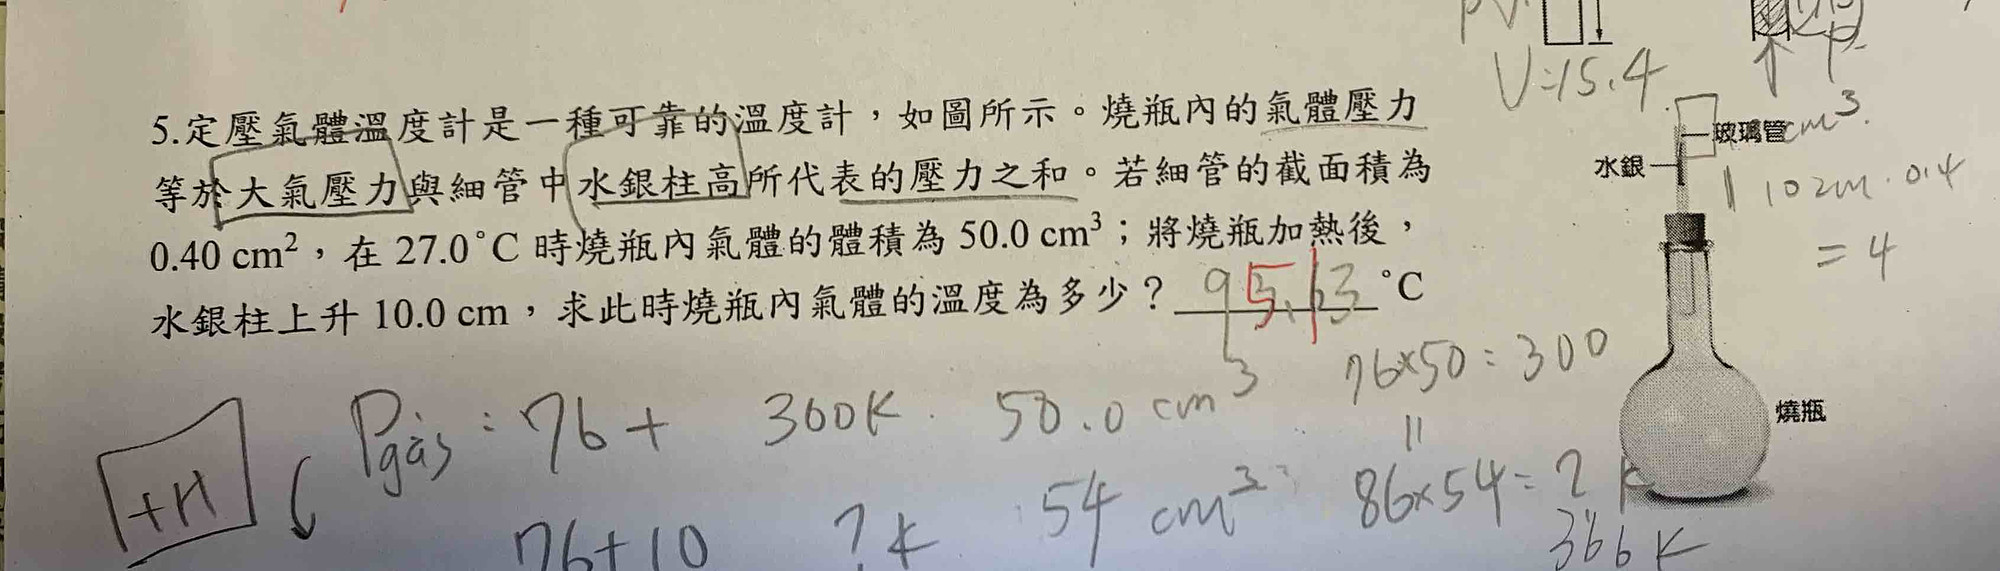 V=15.4
cm³.
5.定壓氣體溫度計是一種可靠的溫度計，如圖所示。燒瓶內的氣體壓力
等於大氣壓力與細管中水銀柱高所代表的壓力之和。若細管的截面積為
0.40 cm²，在 27.0°C 時燒瓶內氣體的體積為 50.0 cm³；將燒瓶加熱後，
水銀柱上升 10.0 cm，求此時燒瓶內氣體的溫度為多少？ 95.13 °C
玻璃管
水銀
10 cm · 0.4
= 4
燒瓶
3
+H
Pgas: 76+ 300K. 50.0 cm³
76+10 ? K 54 cm³
76×50=300
=
86×54=? K
366 K